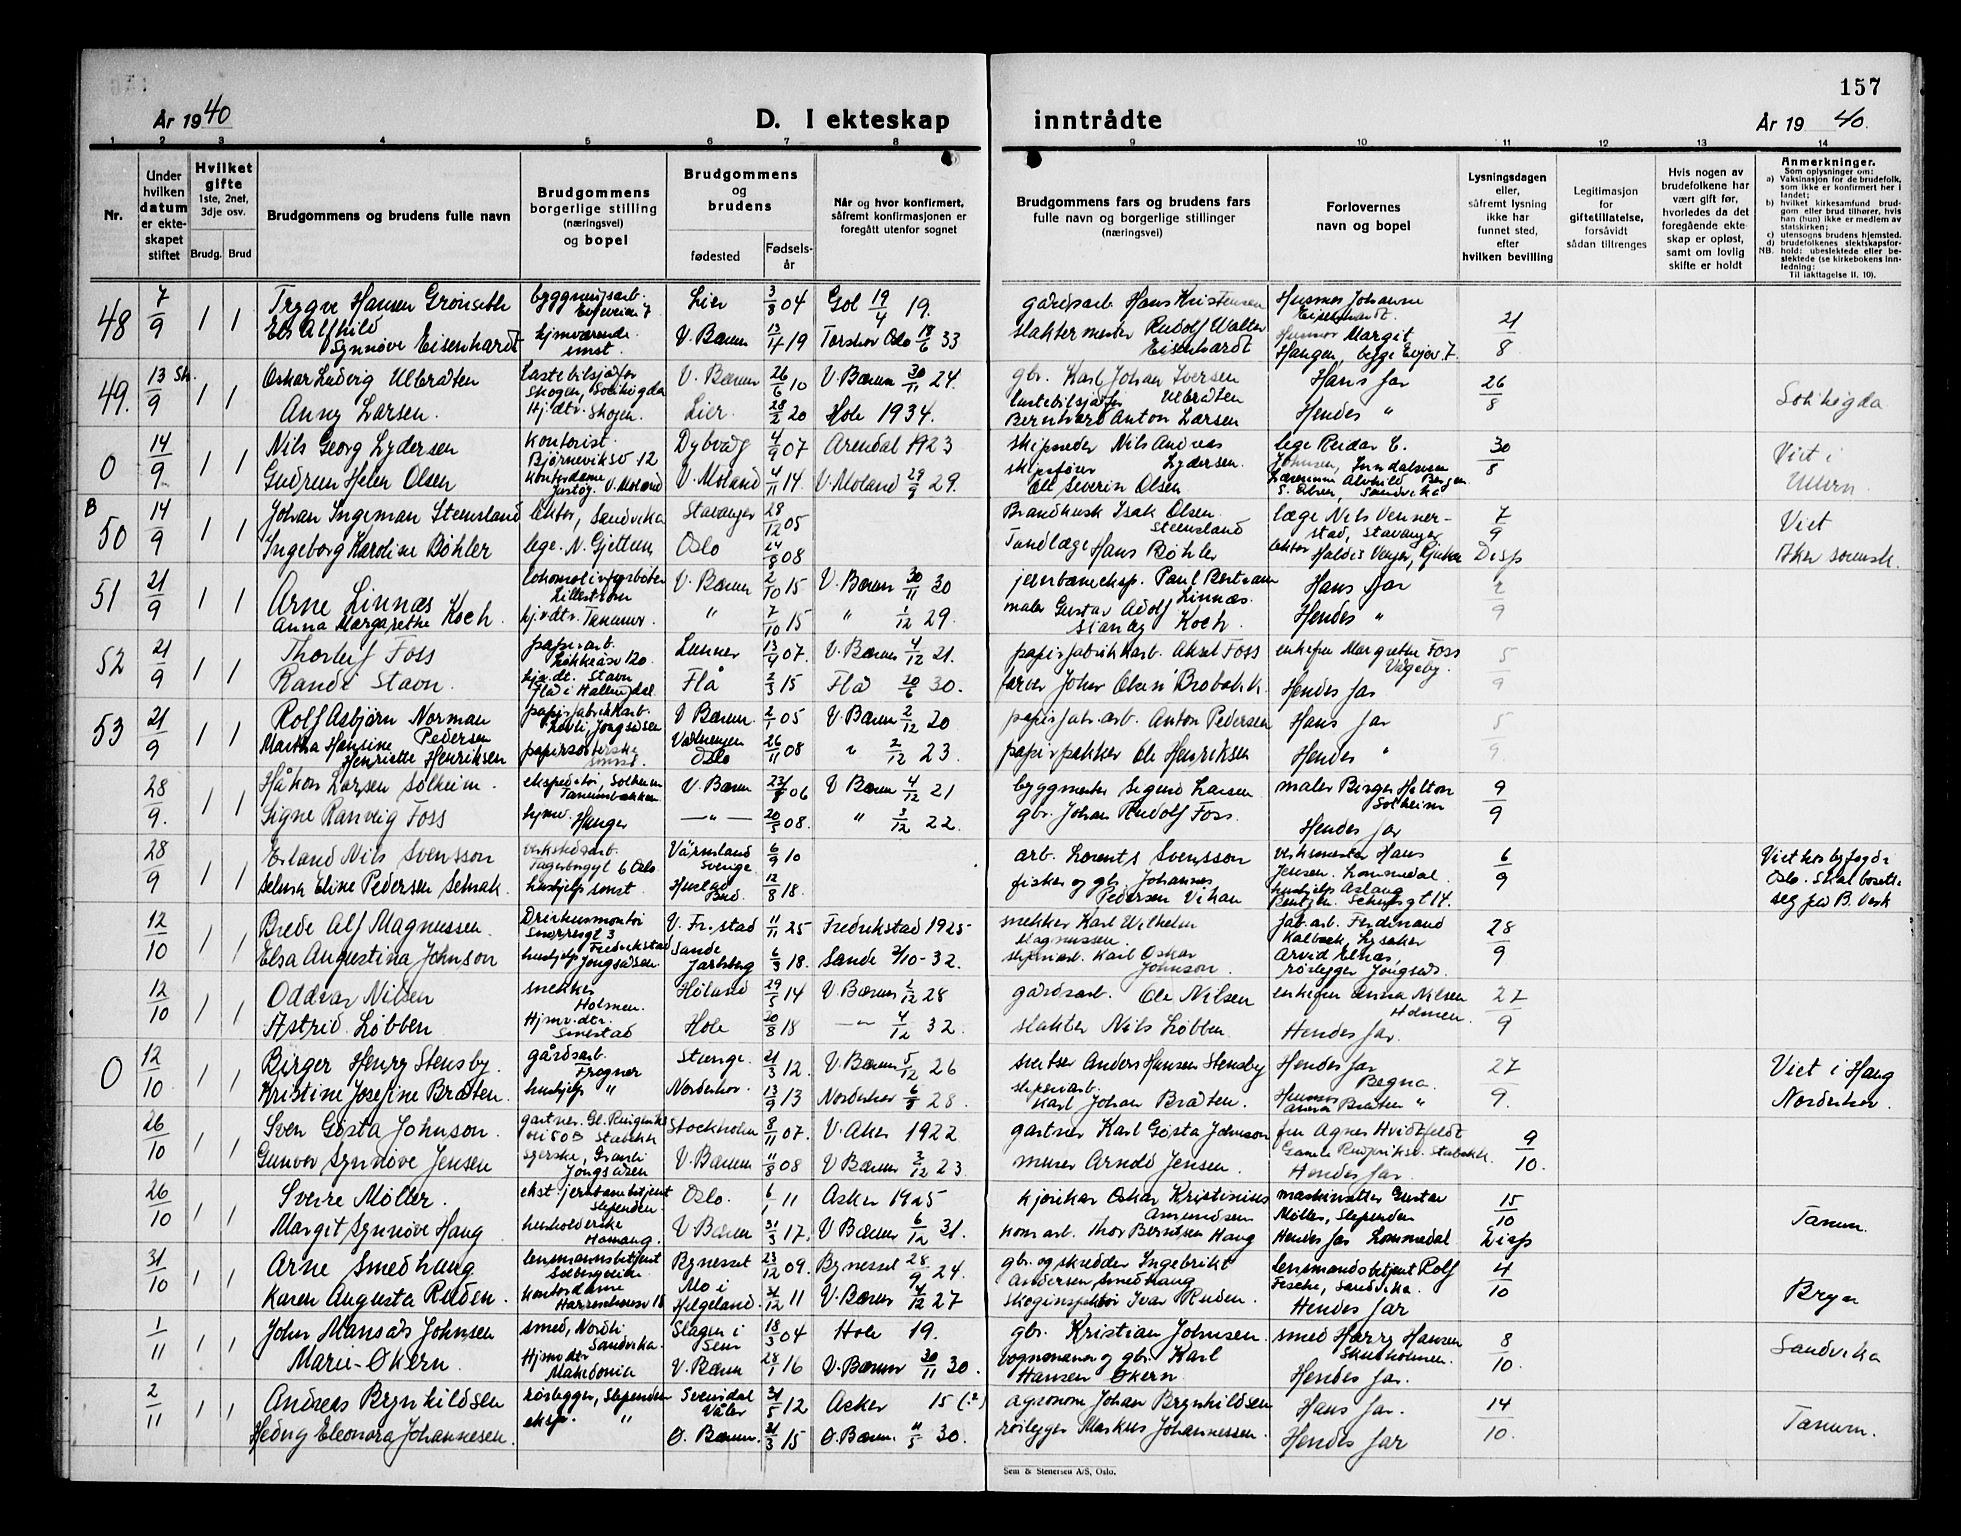 157
År 1940
D. I ekteskap inntrådte
År 1940.
1 2 3 4 5 6 7 8 9 10 11 12 13 14
Nr.
Under hvilken datum er ekteskapet stiftet
Hvilket gifte 1ste, 2net, 3dje osv.
Brudg. Brud
Brudgommens og brudens fulle navn
Brudgommens borgerlige stilling (næringsvei) og bopel
Brudgommens og brudens
fødested
Fødsels-år
Når og hvor konfirmert, såfremt konfirmasjonen er foregått utenfor sognet
Brudgommens fars og brudens fars fulle navn og borgerlige stillinger (næringsvei)
Forlovernes navn og bopel
Lysningsdagen eller, såfremt lysning ikke har funnet sted, efter hvilken bevilling
Legitimasjon for giftetillatelse, forsåvidt sådan tiltrenges
Hvis nogen av brudefolkene har vært gift før, hvorledes da det foregående ekteskap er opløst, samt om lovlig skifte er holdt
Anmerkninger.
Som oplysninger om:
a) Vaksinasjon for de brudefolk, som ikke er konfirmert her i landet;
b) hvilket kirkesamfund brudgom eller brud tilhører, hvis han (hun) ikke er medlem av statskirken;
c) utensogns brudens hjemsted.
d) brudefolkenes slektskapsforhold: ubeslektede eller beslektede (se kirkebokens innledning:
NB. Til iakttagelse II. 10).
48 7/9 1 1 Trygve Hansen byggningsarb. Lier 3/8 04 Gol 19/4 19. gårdsarb. Hans Kristensen Husmor Johanne Eisenhardt. 21/8
Els Alfhild Synnøve Eisenhardt hjmværende smst. V. Bærum 13/4 19 Torshov Oslo 18/6 33 slaktermester Rudolf Walter Eisenhardt Husmor Margit Haugen, begge
49. 13/9 1 1 Oskar Ludvig Ulbråten Lastebilsjåfør Skogen, Sollihøgda V. Bærum 26/6 10 V. Bærum 30/11 24. gbr. Karl Johan Iversen Ulbråten Hans far 26/8 Sollihøgda
Anny Larsen. Hj.dtr. Skogen. Lier. 28/2 20 Hole 1934. Lastebilsjåfør Bernhard Anton Larsen Hendes "
0 14/9 1 1 Nils Georg Lydersen kontorist. Bjørneviksv 12 Dybvåg 4/9 07 Arendal 1923 skipsreder Nils Andreas Lydersen. lege Reidar C. Johnsen, 30/8 Viet i Ullern.
Gudrun Helen Olsen Kontordame V. Moland V. Moland 4/11 14. V. Moland 29/9 29. skipsfører Ole Severin Olsen Sandvika
B 50 14/9 1 1 Johan Ingeman Steensland lektor, Sandvika Stavanger 28/12 05 Isak Olsen Steensland læge Nils Vennerstad, Stavanger 7/9 Viet
Ingeborg Karoline Bøhler lege. N. Gjettum, Oslo 24/8 08 Tandlæge Hans Bøhler lektor Disp Aker sorensk.
51 21/9 1 1 Arne Linnæs Lillestrøm V. Bærum 2/10 15 V. Bærum 30/11 30 Paul Bertram Linnæs. Hans far 2/9
Anna Margarethe Koch. hj.v.dtr. Tanum. " 7/10 15 " 1/12 29. maler Gustav Adolf Koch. Hendes "
52 21/9 1 1 Thorleif Foss papirarb. Lunner 13/4 07. V. Bærum 4/12 21. papirfabrikkarb. Aksel Foss enkefru Margrethe Foss 5/9
Randi Stavn. hjv.dt. Stavn Flå i Hallingdal. Flå 2/3 15 Flå 20/6 30. Hendes far
53 21/9 1 1 Rolf Asbjørn Norman Pedersen papirfabrikkarb. Jongsåsen V Bærum. 2/1 05 V. Bærum 2/12 20 papirfab.arb. Anton Pedersen Hans far 5/9.
Martha Hansine Henriette Henriksen papirsorterske smst. Oslo 26/11 08 " 2/12 23. papirpakker Ole Henriksen Hendes "
28/9. 1 1 Håkon Larsen Solheim. ekspeditør, Solheim Tanumbakken V. Bærum 23/8 06 V Bærum 4/12 21 byggmester Sigurd Larsen maler Birger Solheim 9/9
Signe Ranveig Foss hjmv. Hauger —"— 20/5 08. " 3/12 22. gbr. Johan Rudolf Foss. Hendes far
28/9 1 1 Erland Nils Svensson verkstedsarb. 6 Oslo Värmland Sverige 6/9 10 arb. Lorents Svensson verksmester Hans Jensen. Lommedal 6/9 Viet hos byfogd i Oslo. Skal bosette seg på B. Verk
Selma Eline Pedersen hushjelp smst. Hustad 12/8 18. fisker og gbr. Johannes Pedersen hushjelp Aslaug
12/10 1 1 Brede Alf Magnussen. Fredrikstad V. Fr.stad 11/11 25 Fredrikstad 1925 snekker Karl Wilhelm Magnussen. fab.arb. Ferdinand Kalbæk, Lysaker 28/9
Elsa Augustina Johnson hushjelp Jongsåsen Sande Jarlsberg 6/3 18. Sande 2/10-32. Karl Oskar Johnson. Arvid Elnæs, rørlegger Jongsås.
12/10 1 1 Oddvar Nilsen snekker Holmen. Høland 29/5 14 V. Bærum 2/12 28 gårdsarb. Ole Nilsen enkefru Anna Nilsen Holmen. 27/9
Astrid Løbben Hjmv.dtr. Smestad Hole 20/8 18 —"— 4/12 32. slakter Nils Løbben. Hendes far.
0 12/10 1 1 Birger Henry Stensby gårdsarb. Frogner Stange. 21/3 12. V. Bærum 5/12 26 Anders Hansen Stensby Hendes far Begna. 27/9. Viet i Haug Norderhov.
Kristine Josefine Bråten. hushjelp " Norderhov. 13/9 13 Norderhov 6/8 28. sliperiarb. Karl Johan Bråten. Husmor Anna Bråten "
26/10 1 1 Sven Gøsta Johnson. gartner. Stabekk Stockholm 8/11 07. V. Aker 1922 gartner Karl Gøsta Johnson fru Agnes Hvidtfeldt 9/10.
Gunvor Synnøve Jensen syerske, Jongsåsen V. Bærum 11/8 08 V Bærum 3/12 23. murer Arnold Jensen. Hendes far.
26/10 1 1 Sverre Møller. Slependen. Oslo. 6/1 11 Asker 1925 kjørekar Oskar Kristinius Amundsen Gustav Møller, Slependen 15/10 Tanum.
Margit Synnøve Haug husholderske Hamang. V Bærum 31/3 17. V Bærum 6/12 31. kom.arb. Thor Berntsen Haug Hendes far Lommedal Disp
31/10 1 1 Arne Smedhaug lensmannsbetjent Bynesset 23/12 09. Bynesset 28/9 24. gbr. og skredder Ingebrikt Andersen Smedhaug lensmandsbetjent Rolf Fesche, Sandvika. 4/10 Bryn
Karen Augusta Ruden. kontordame Mo i Helgeland. 31/12 11 V. Bærum 4/12 27 skoginspektør Ivar Ruden. Hendes far
1/11 1 1 John Mansås Johnsen smed, Nordli Sandvika. Slagen i Sem 18/3 04 Hole 19. gbr. Kristian Johnsen. smed Harry Hansen 8/10. Sandvika
Marie Økern. Hjmv.dtr Makedonia V. Bærum 28/1 16 V. Bærum 30/11 30. vognmann og gbr. Karl Hansen Økern Hendes far.
2/11 1 1 Andreas Brynhildsen rørlegger, Slependen Svinndal Våler 31/5 12 Asker 15 (?) agronom Johan Brynhildsen Hans far. 14/10. Tanum.
Hedvig Eleonora Johannesen. eksp. " Ø. Bærum. 31/3 15 Ø. Bærum. 11/5 30. rørlegger Markus Johannessen. Hendes far
Sem & Stenersen A/S, Oslo.